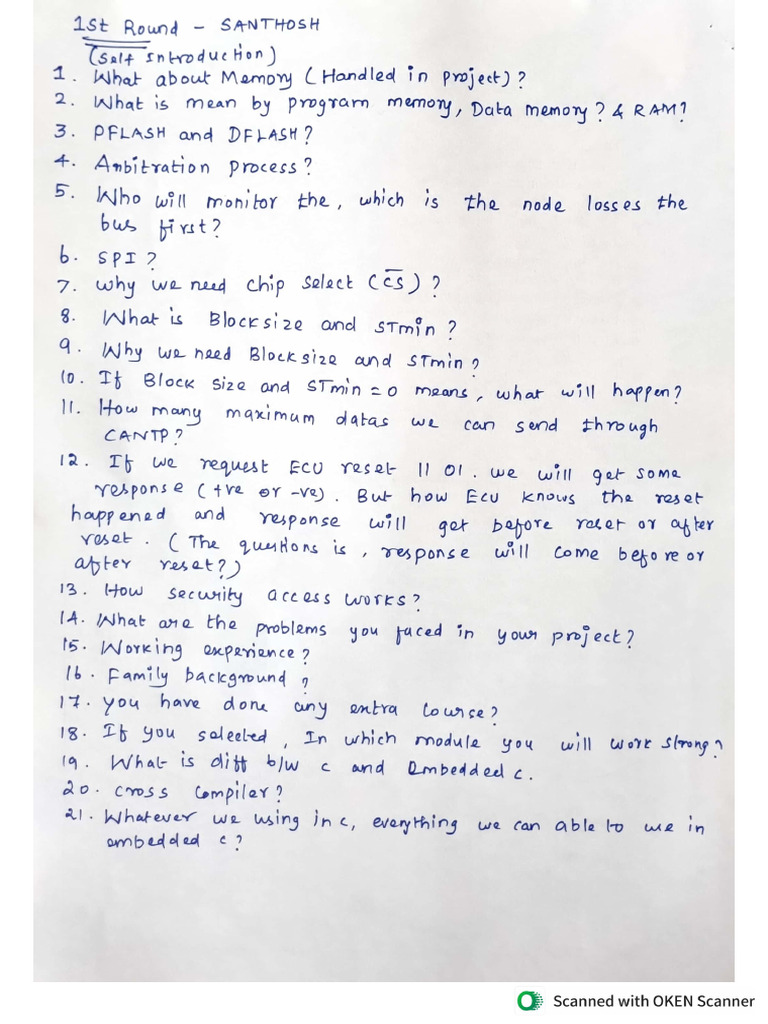 1st Round - SANTHOSH
(Self Introduction)
1. What about Memory (Handled in project)?
2. What is mean by program memory, Data memory? & RAM?
3. PFLASH and DFLASH?
4. Arbitration process?
5. Who will monitor the, which is the node losses the
bus first?
6. SPI?
7. Why we need chip select (C̅S̅)?
8. What is Blocksize and STmin?
9. Why we need Blocksize and STmin?
10. If Block size and STmin = 0 means, what will happen?
11. How many maximum datas we can send through
CANTP?
12. If we request ECU reset 11 01. we will get some
response (+ve or -ve). But how ECU knows the reset
happened and response will get before reset or after
reset. (The questions is, response will come before or
after reset?)
13. How security access works?
14. What are the problems you faced in your project?
15. Working experience?
16. Family background?
17. you have done any extra course?
18. If you selected, In which module you will work strong?
19. What is diff b/w c and Embedded c.
20. cross compiler?
21. Whatever we using in c, everything we can able to use in
embedded c?
Scanned with OKEN Scanner